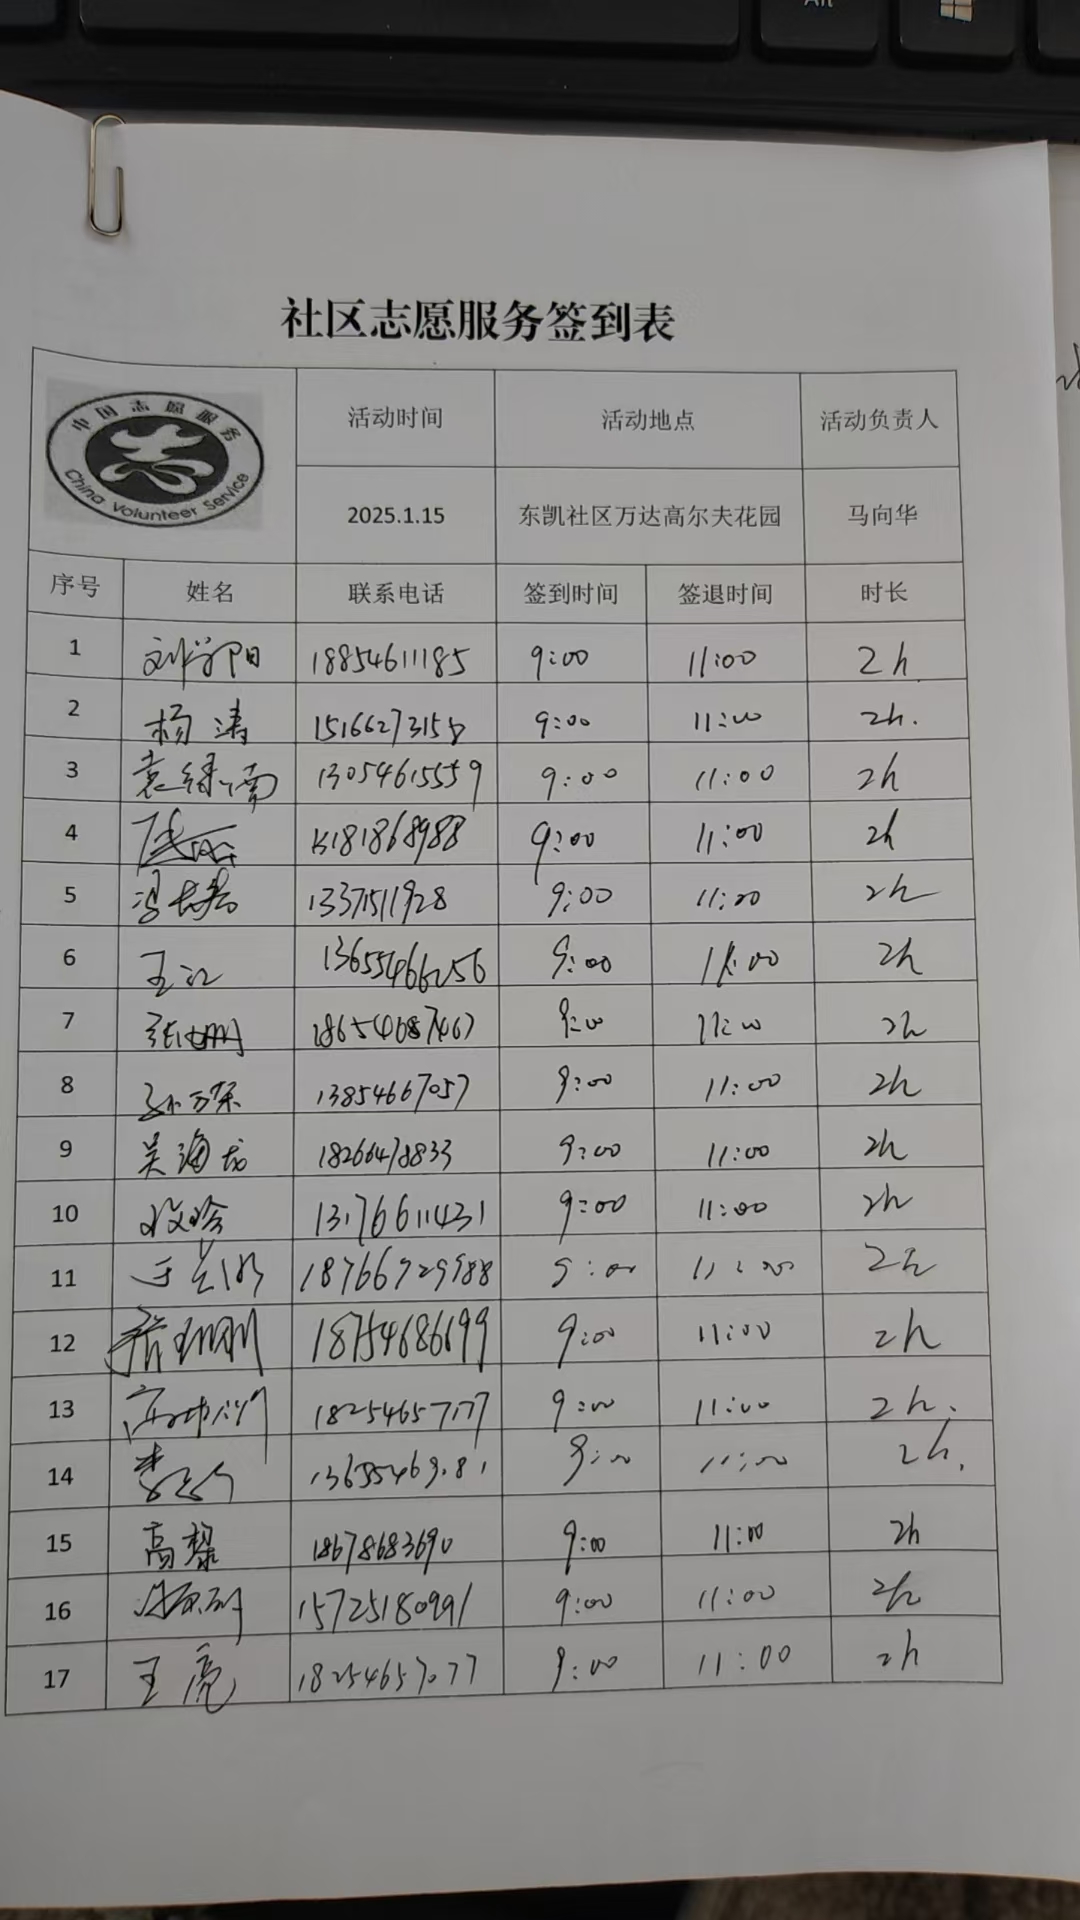 Alt
社区志愿服务签到表
中国志愿服务
China Volunteer Service
活动时间 活动地点 活动负责人
2025.1.15 东凯社区万达高尔夫花园 马向华
序号 姓名 联系电话 签到时间 签退时间 时长
1 刘学阳 18854611185 9:00 11:00 2h
2 杨涛 15166273158 9:00 11:00 2h.
3 13054615559 9:00 11:00 2h
4 9:00 11:00 2h
5 13371511928 9:00 11:00 2h
6 王江 13655466256 9:00 11:00 2h
7 18654687467 9:00 11:00 2h
8 13854667057 9:00 11:00 2h
9 吴海龙 18266478833 9:00 11:00 2h
10 13176611431 9:00 11:00 2h
11 18766729988 9:00 11:00 2h
12 18754686699 9:00 11:00 2h
13 18254657177 9:00 11:00 2h.
14 9:00 11:00 2h.
15 高黎 18678683690 9:00 11:00 2h
16 15725180991 9:00 11:00 2h
17 王亮 18254657077 9:00 11:00 2h